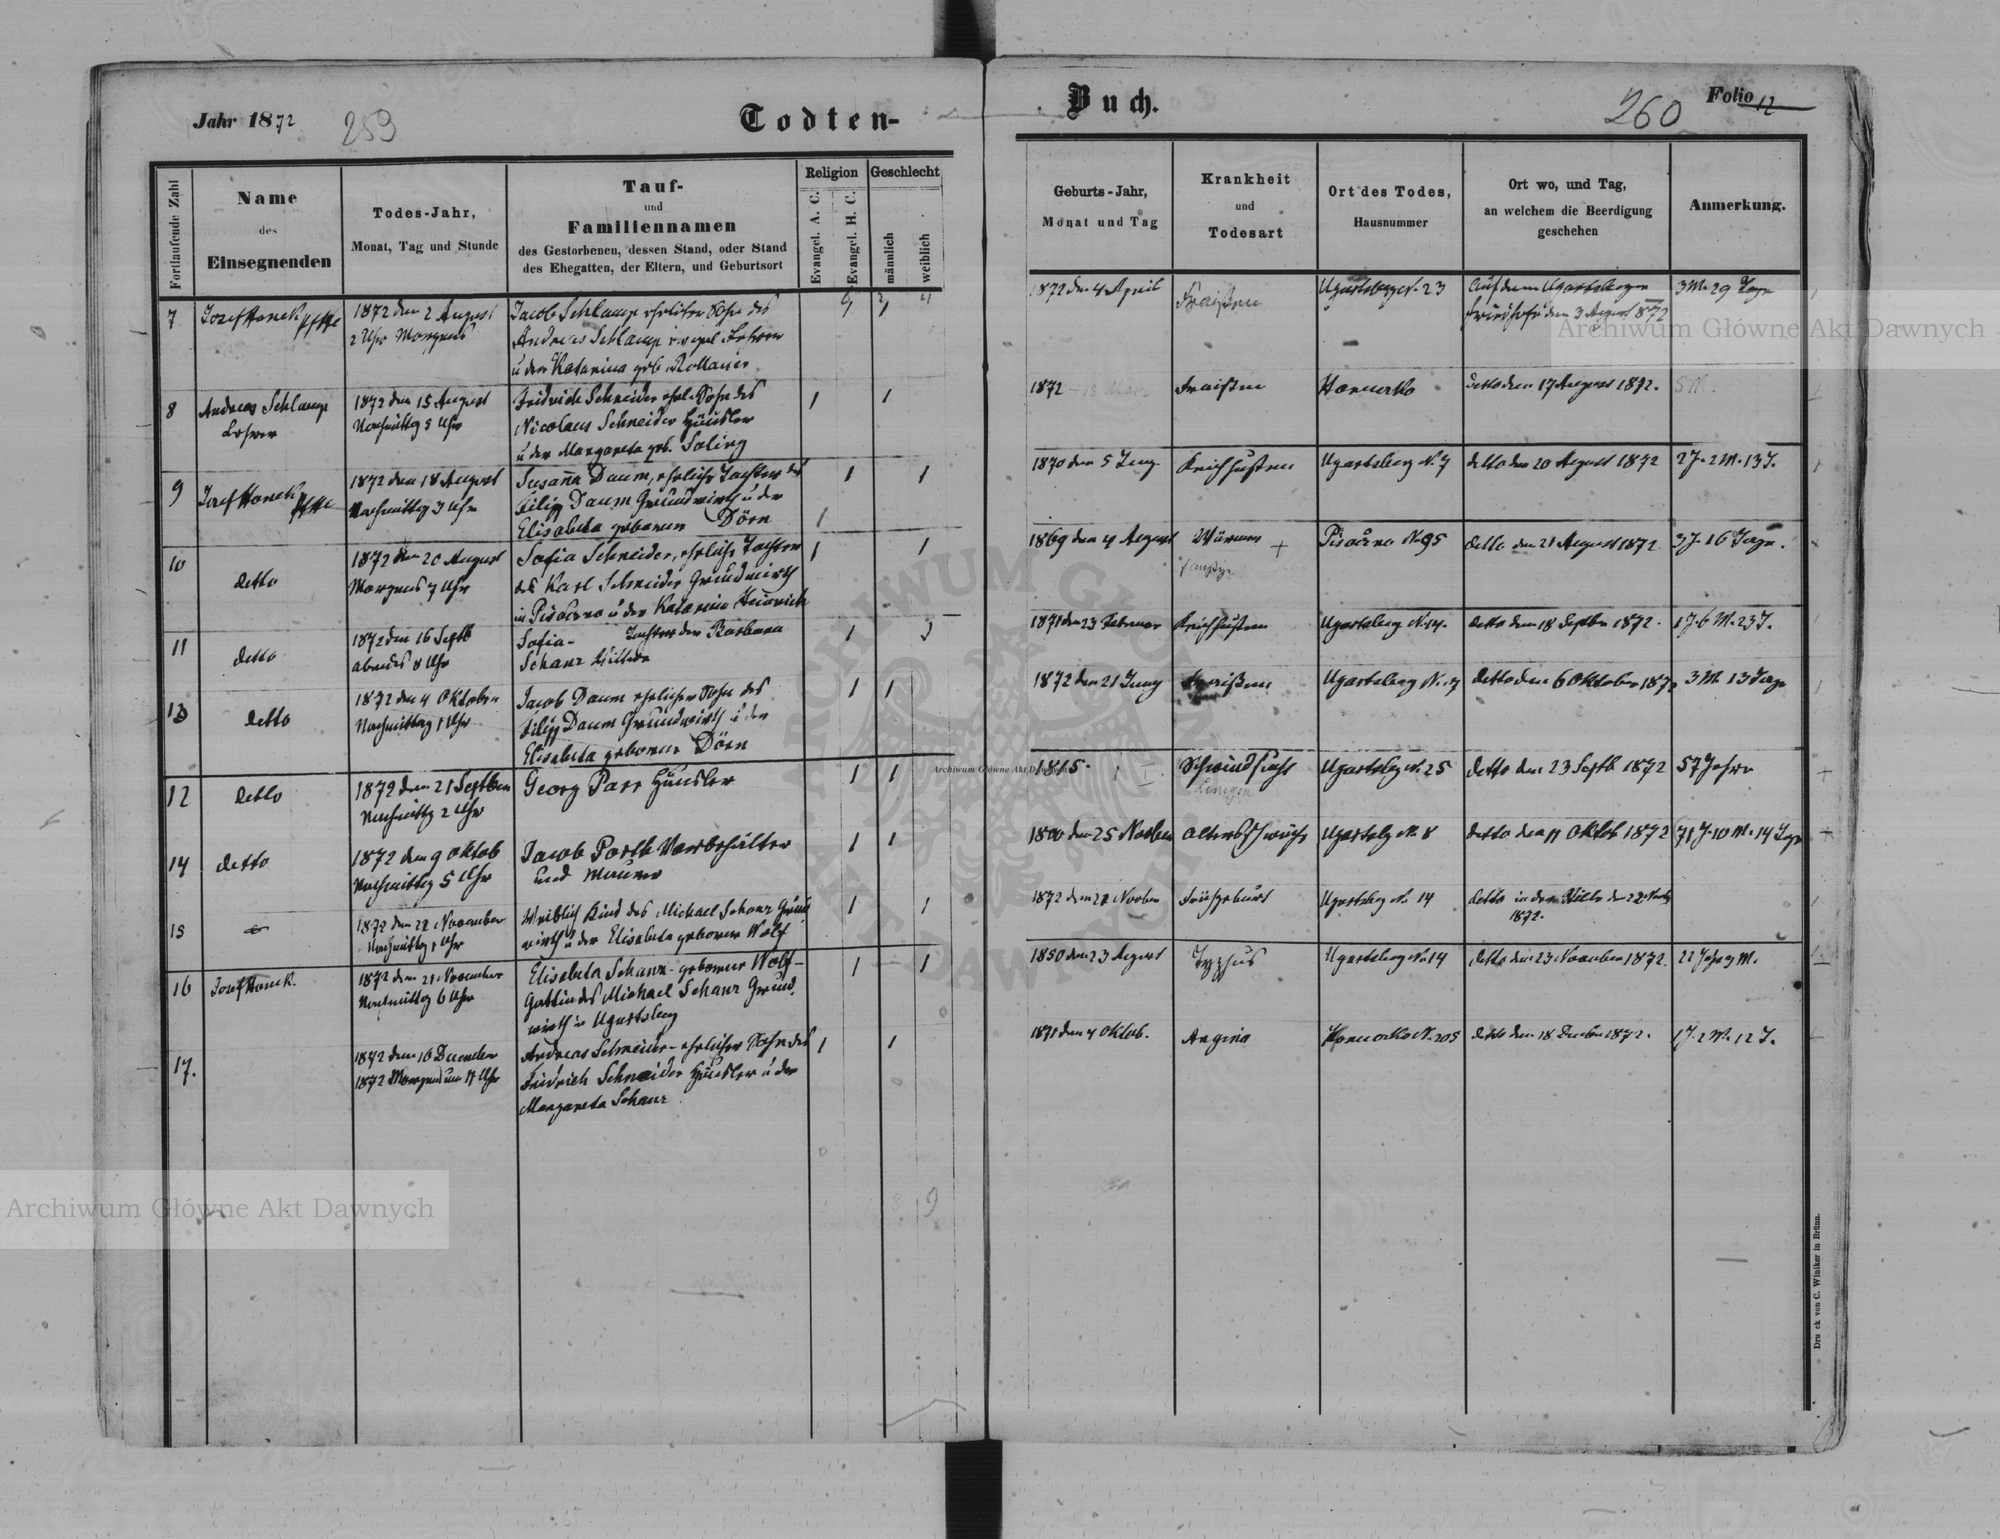 Jahr 1872
259
Todten-
Buch.
260
Folio 12
Fortlaufende Zahl
Name
des
Einsegnenden
Todes-Jahr,
Monat, Tag und Stunde
Tauf-
und
Familiennamen
des Gestorbenen, dessen Stand, oder Stand
des Ehegatten, der Eltern, und Geburtsort
Religion
Evangel. A. C.
Evangel. H. C.
Geschlecht
männlich
weiblich
Geburts-Jahr,
Monat und Tag
Krankheit
und
Todesart
Ort des Todes,
Hausnummer
Ort wo, und Tag,
an welchem die Beerdigung
geschehen
Anmerkung.
7
Jozef Honek
1872 den 2 August
2 Uhr Morgens
Jacob Schlamp ehelicher Sohn des
Andreas Schlamp Lehrer
u der Katarina geb.
1872 den 4 April
Fraißen
Ugartsberg N. 23
Auf dem Ugartsberger
Friedhofe den 3 August 1872
3 M. 29 Tage
8
Andreas Schlamp
Lehrer
1872 den 15 August
Nachmittag 5 Uhr
Fridrich Schneider ehel. Sohn des
Nicolaus Schneider Häusler
u der Margareta geb. Saling
1
1
1872 - 18 März
Fraißen
Horucko
detto den 17 August 1872.
5 M.
9
Jozef Honek
1872 den 18 August
Nachmittag 3 Uhr
Susanna Daum, eheliche Tochter des
Filipp Daum Grundwirth u der
Elisabeta geborenen Dörn
1
1
1870 den 5 Juny
Keichhusten
Ugartsberg N. 7
detto den 20 August 1872
2 J. 2 M. 13 T.
10
detto
1872 den 20 August
Morgens 7 Uhr
Sofia Schneider, eheliche Tochter
des Karl Schneider Grundwirth
in u der Katarina Heinrich
1
1
1869 den 4 August
Würmer
N. 95
detto den 21 August 1872
3 J. 16 Tage.
11
detto
1872 den 16 Septb
abends 8 Uhr
Sofia - Tochter der Barbara
Schanz Wittwe
1
1871 den 23 Februar
Keichhusten
Ugartsberg N. 14.
detto den 18 Septbr 1872.
1 J. 6 M. 23 T.
13
detto
1872 den 4 Oktober
Nachmittag 1 Uhr
Jacob Daum ehelicher Sohn des
Filipp Daum Grundwirth u der
Elisabeta geborene Dörn
1
1
1872 den 21 Juny
Fraißen
Ugartsberg N. 7
detto den 6 Oktober 1872
3 M 13 Tage
12
detto
1872 den 21 Septbr
Nachmittag 2 Uhr
Georg Parr Häusler
1
1
1815.
Schwindsucht
Ugartsbg N. 25
detto den 23 Septb 1872
57 Jahre
14
detto
1872 den 9 Oktob
Nachmittag 5 Uhr
Jacob Porth Vorbehälter
und Maurer
1
1
1800 den 25 Novber
Altersschwäche
Ugartsbg N. 8
detto den 11 Oktob 1872
71 J. 10 M. 14 Tage
15
1872 den 22 November
Nachmittag 1 Uhr
Weiblich Kind des Michael Schanz Grund
wirth u der Elisabeta geborene Wolf
1
1
1872 den 22 Novber
Frühgeburt
Ugartsbg N. 14
detto in der Stille den 22 Novb
1872.
16
Jozef Honek.
1872 den 21 November
Nachmittag 6 Uhr
Elisabeta Schanz - geborene Wolf -
Gattin des Michael Schanz Grund
wirth in Ugartsberg
1
1
1850 den 23 August
Typhus
Ugartsberg N. 14
detto den 23 November 1872.
22 Jahre M.
17.
1872 den 16 December
1872 Morgens um 11 Uhr
Andreas Schneider - ehelicher Sohn des
Fridrich Schneider Häusler u der
Margareta Schanz
1
1
1871 den 4 Oktob.
Angina
Horucko N. 205
detto den 18 Decber 1872.
1 J. 2 M. 12 T.
9
Druck von C. Winiker in Brünn.
Archiwum Główne Akt Dawnych
Archiwum Główne Akt Dawnych
Archiwum Główne Akt Dawnych